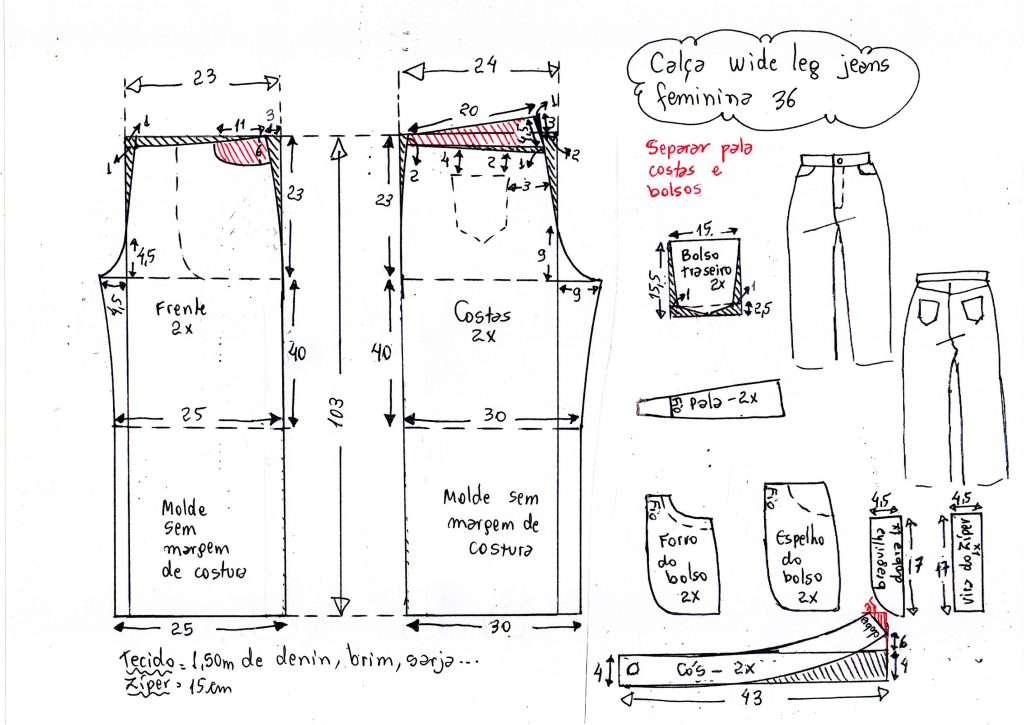 Calça wide leg jeans
feminina 36
Separar pala
costas e
bolsos
23
3
11
6
1
1
23
4,5
4,5
Frente
2x
40
25
103
Molde
sem
margem
de costura
25
24
20
1
3
4,5
2
2
4
2
1
3
23
9
9
Costas
2x
40
30
Molde sem
margem de
costura
30
15
15,5
Bolso
traseiro
2x
1
1
2,5
Fio
pala - 2x
Fio
Forro
do
bolso
2x
Fio
Espelho
do
bolso
2x
4,5
braguilha
dobra x1
17
4,5
17
vis do Zíper
x1
dobra
6
4
Cós - 2x
4
43
Tecido = 1,50m de denin, brim, sarja...
Zíper = 15cm